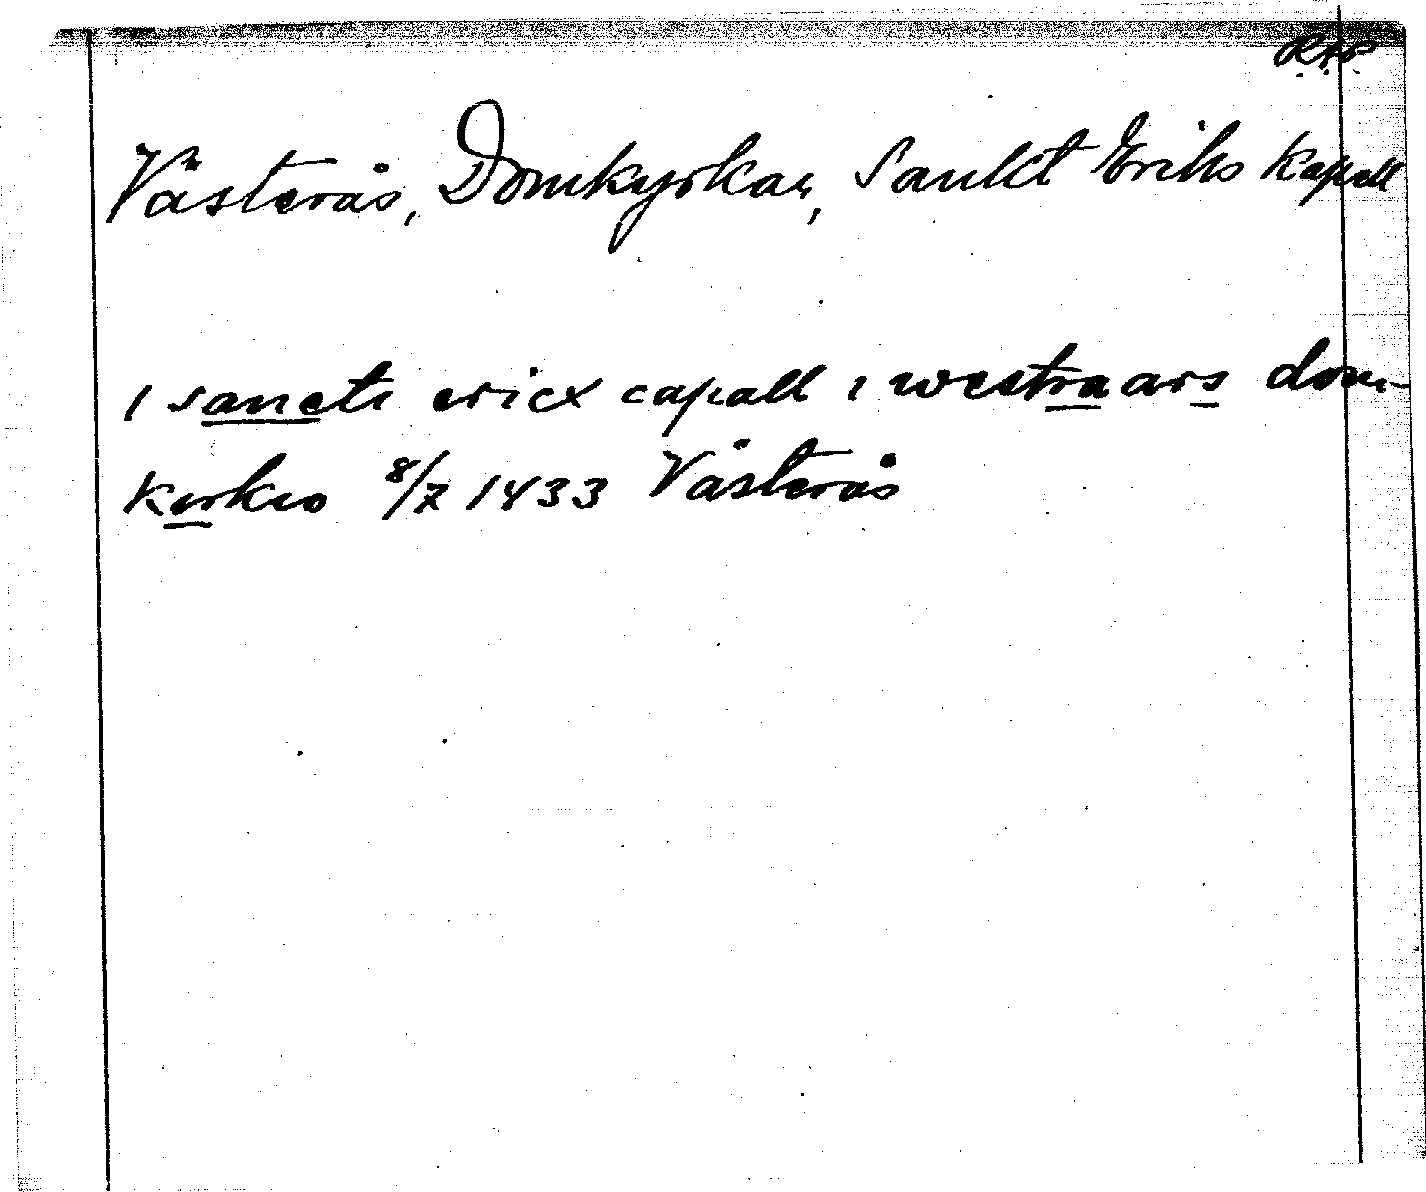 RAP
Västerås, Domkyrkan, Sankt Eriks kapell
i sancti ericx capall i westraars dom-
kirkio 8/7 1433 Västerås